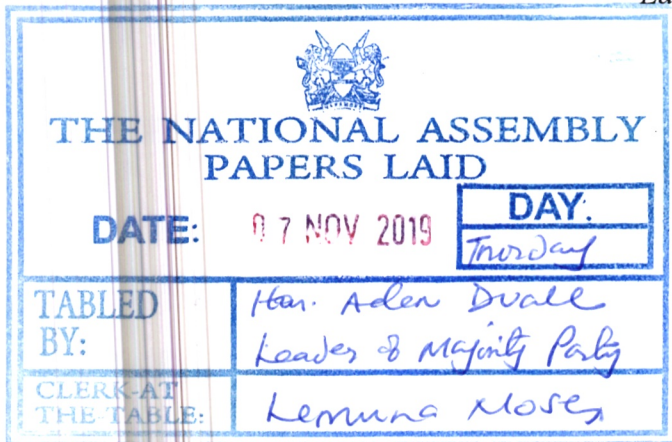 THE NATIONAL ASSEMBLY
PAPERS LAID
DATE: 07 NOV 2019
DAY.
Thursday
TABLED BY:
Hon. Aden Duale
Leader of Majority Party
CLERK-AT THE-TABLE:
Moses